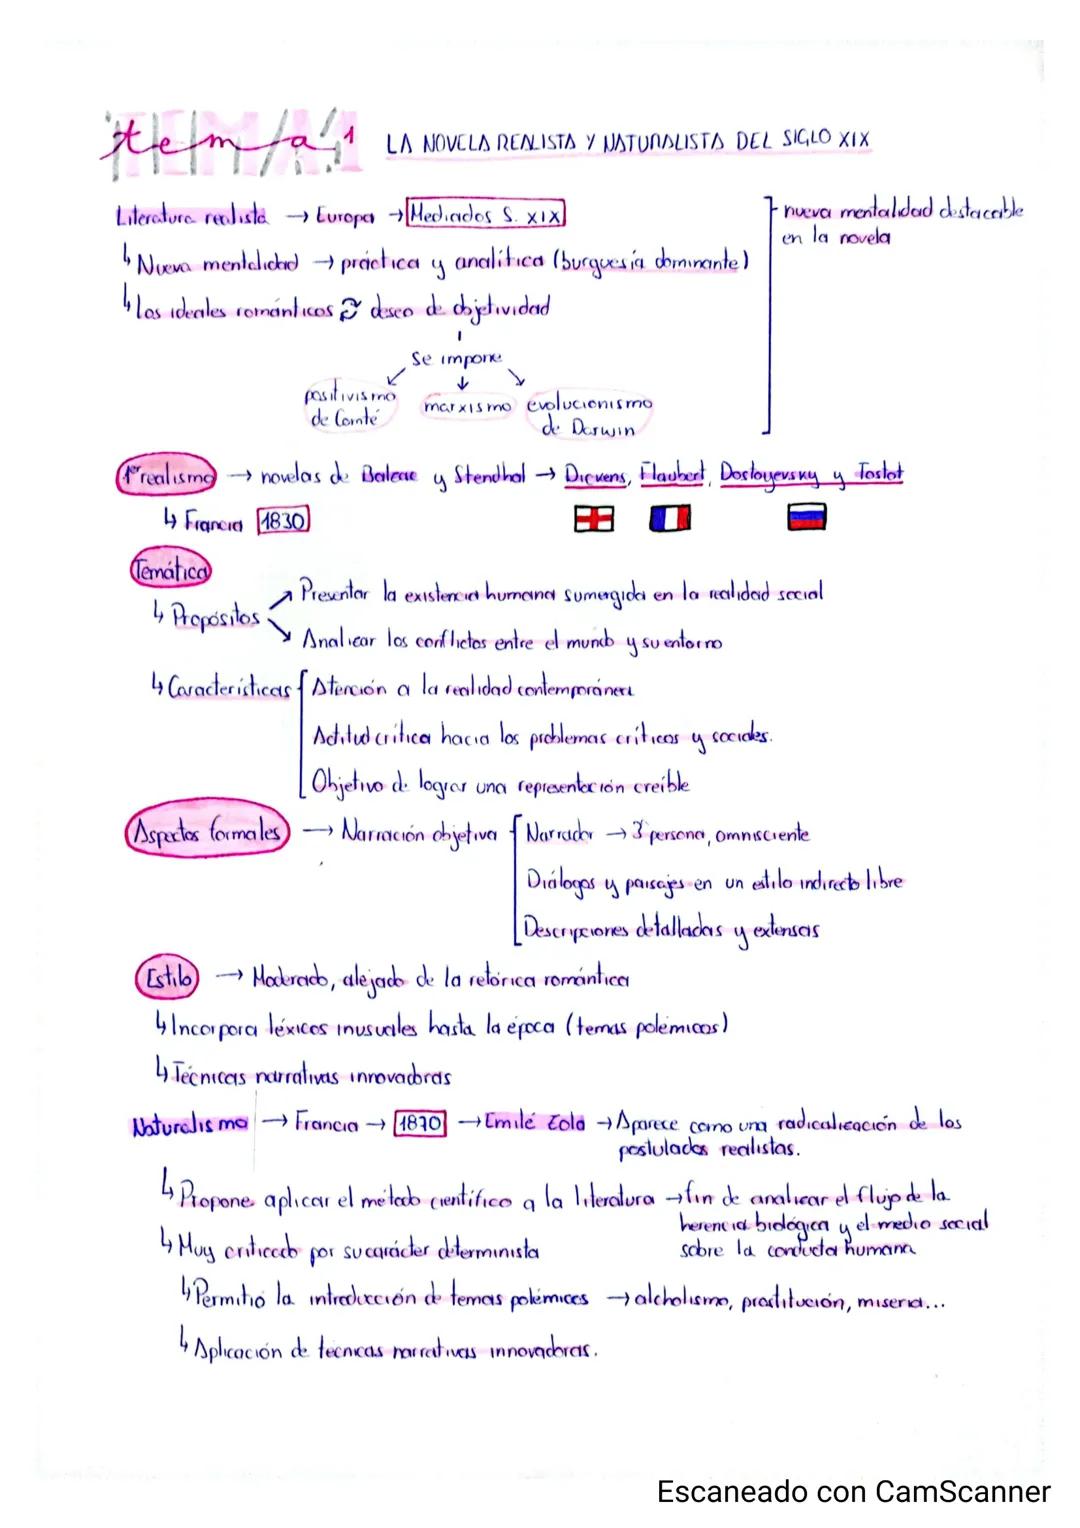 tema 1 LA NOVELA REALISTA Y NATURALISTA DEL SIGLO XIX
Literatura realista → Europa → Mediados S. XIX
nueva mentalidad destacable
en la novela
↳ Nueva mentalidad → práctica y analítica (burguesía dominante)
↳ los ideales románticos deseo de objetividad
Se impone
positivismo
de Comté
marxismo
evolucionismo
de Darwin
1er realismo → novelas de Balzac y Stendhal → Dicvens, Flaubert, Dostoyevsky y Tostot
↳ Francia 1830
Temática
↳ Propósitos
↗ Presentar la existencia humana sumergida en la realidad social
↘ Analizar los conflictos entre el mundo y su entorno
↳ Características { Atención a la realidad contemporánea
Actitud crítica hacia los problemas críticos y sociales.
Objetivo de lograr una representación creíble
Aspectos formales → Narración objetiva { Narrador → 3ª persona, omnisciente
Diálogos y paisajes en un estilo indirecto libre
Descripciones detalladas y extensas
Estilo → Moderado, alejado de la retórica romántica
↳ Incorpora léxicos inusuales hasta la época (temas polémicos)
↳ Técnicas narrativas innovadoras
Naturalismo → Francia → 1870 → Emilé Zola → Aparece como una radicalización de los
postulados realistas.
↳ Propone aplicar el método científico a la literatura → fin de analizar el flujo de la
herencia biológica y el medio social
sobre la conducta humana
↳ Muy criticado por su carácter determinista
↳ Permitió la introducción de temas polémicos → alcholismo, prostitución, miseria...
↳ Aplicación de tecnicas narrativas innovadoras.
Escaneado con CamScanner